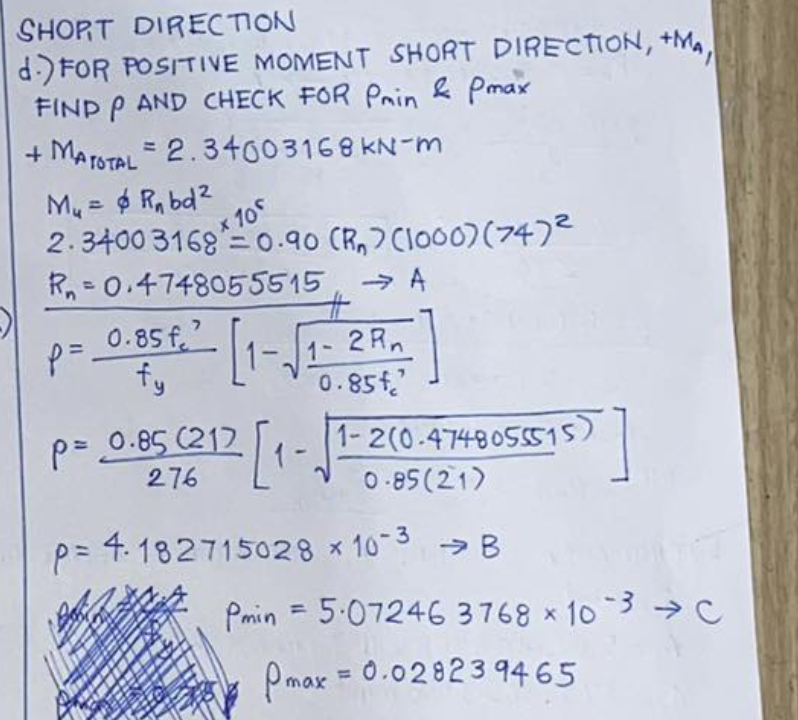 SHORT DIRECTION
d.) FOR POSITIVE MOMENT SHORT DIRECTION, +M_A,
FIND ρ AND CHECK FOR ρmin & ρmax
+ M_A TOTAL = 2.34003168 kN-m
Mu = φ Rn bd²
2.34003168 × 10⁶ = 0.90 (Rn) (1000) (74)²
Rn = 0.4748055515 → A
ρ = 0.85fc' / fy [1 - √(1 - 2Rn / 0.85fc')]
ρ = 0.85 (21) / 276 [1 - √(1 - 2(0.4748055515) / 0.85(21))]
ρ = 4.182715028 × 10⁻³ → B
ρmin = 5.072463768 × 10⁻³ → C
ρmax = 0.028239465